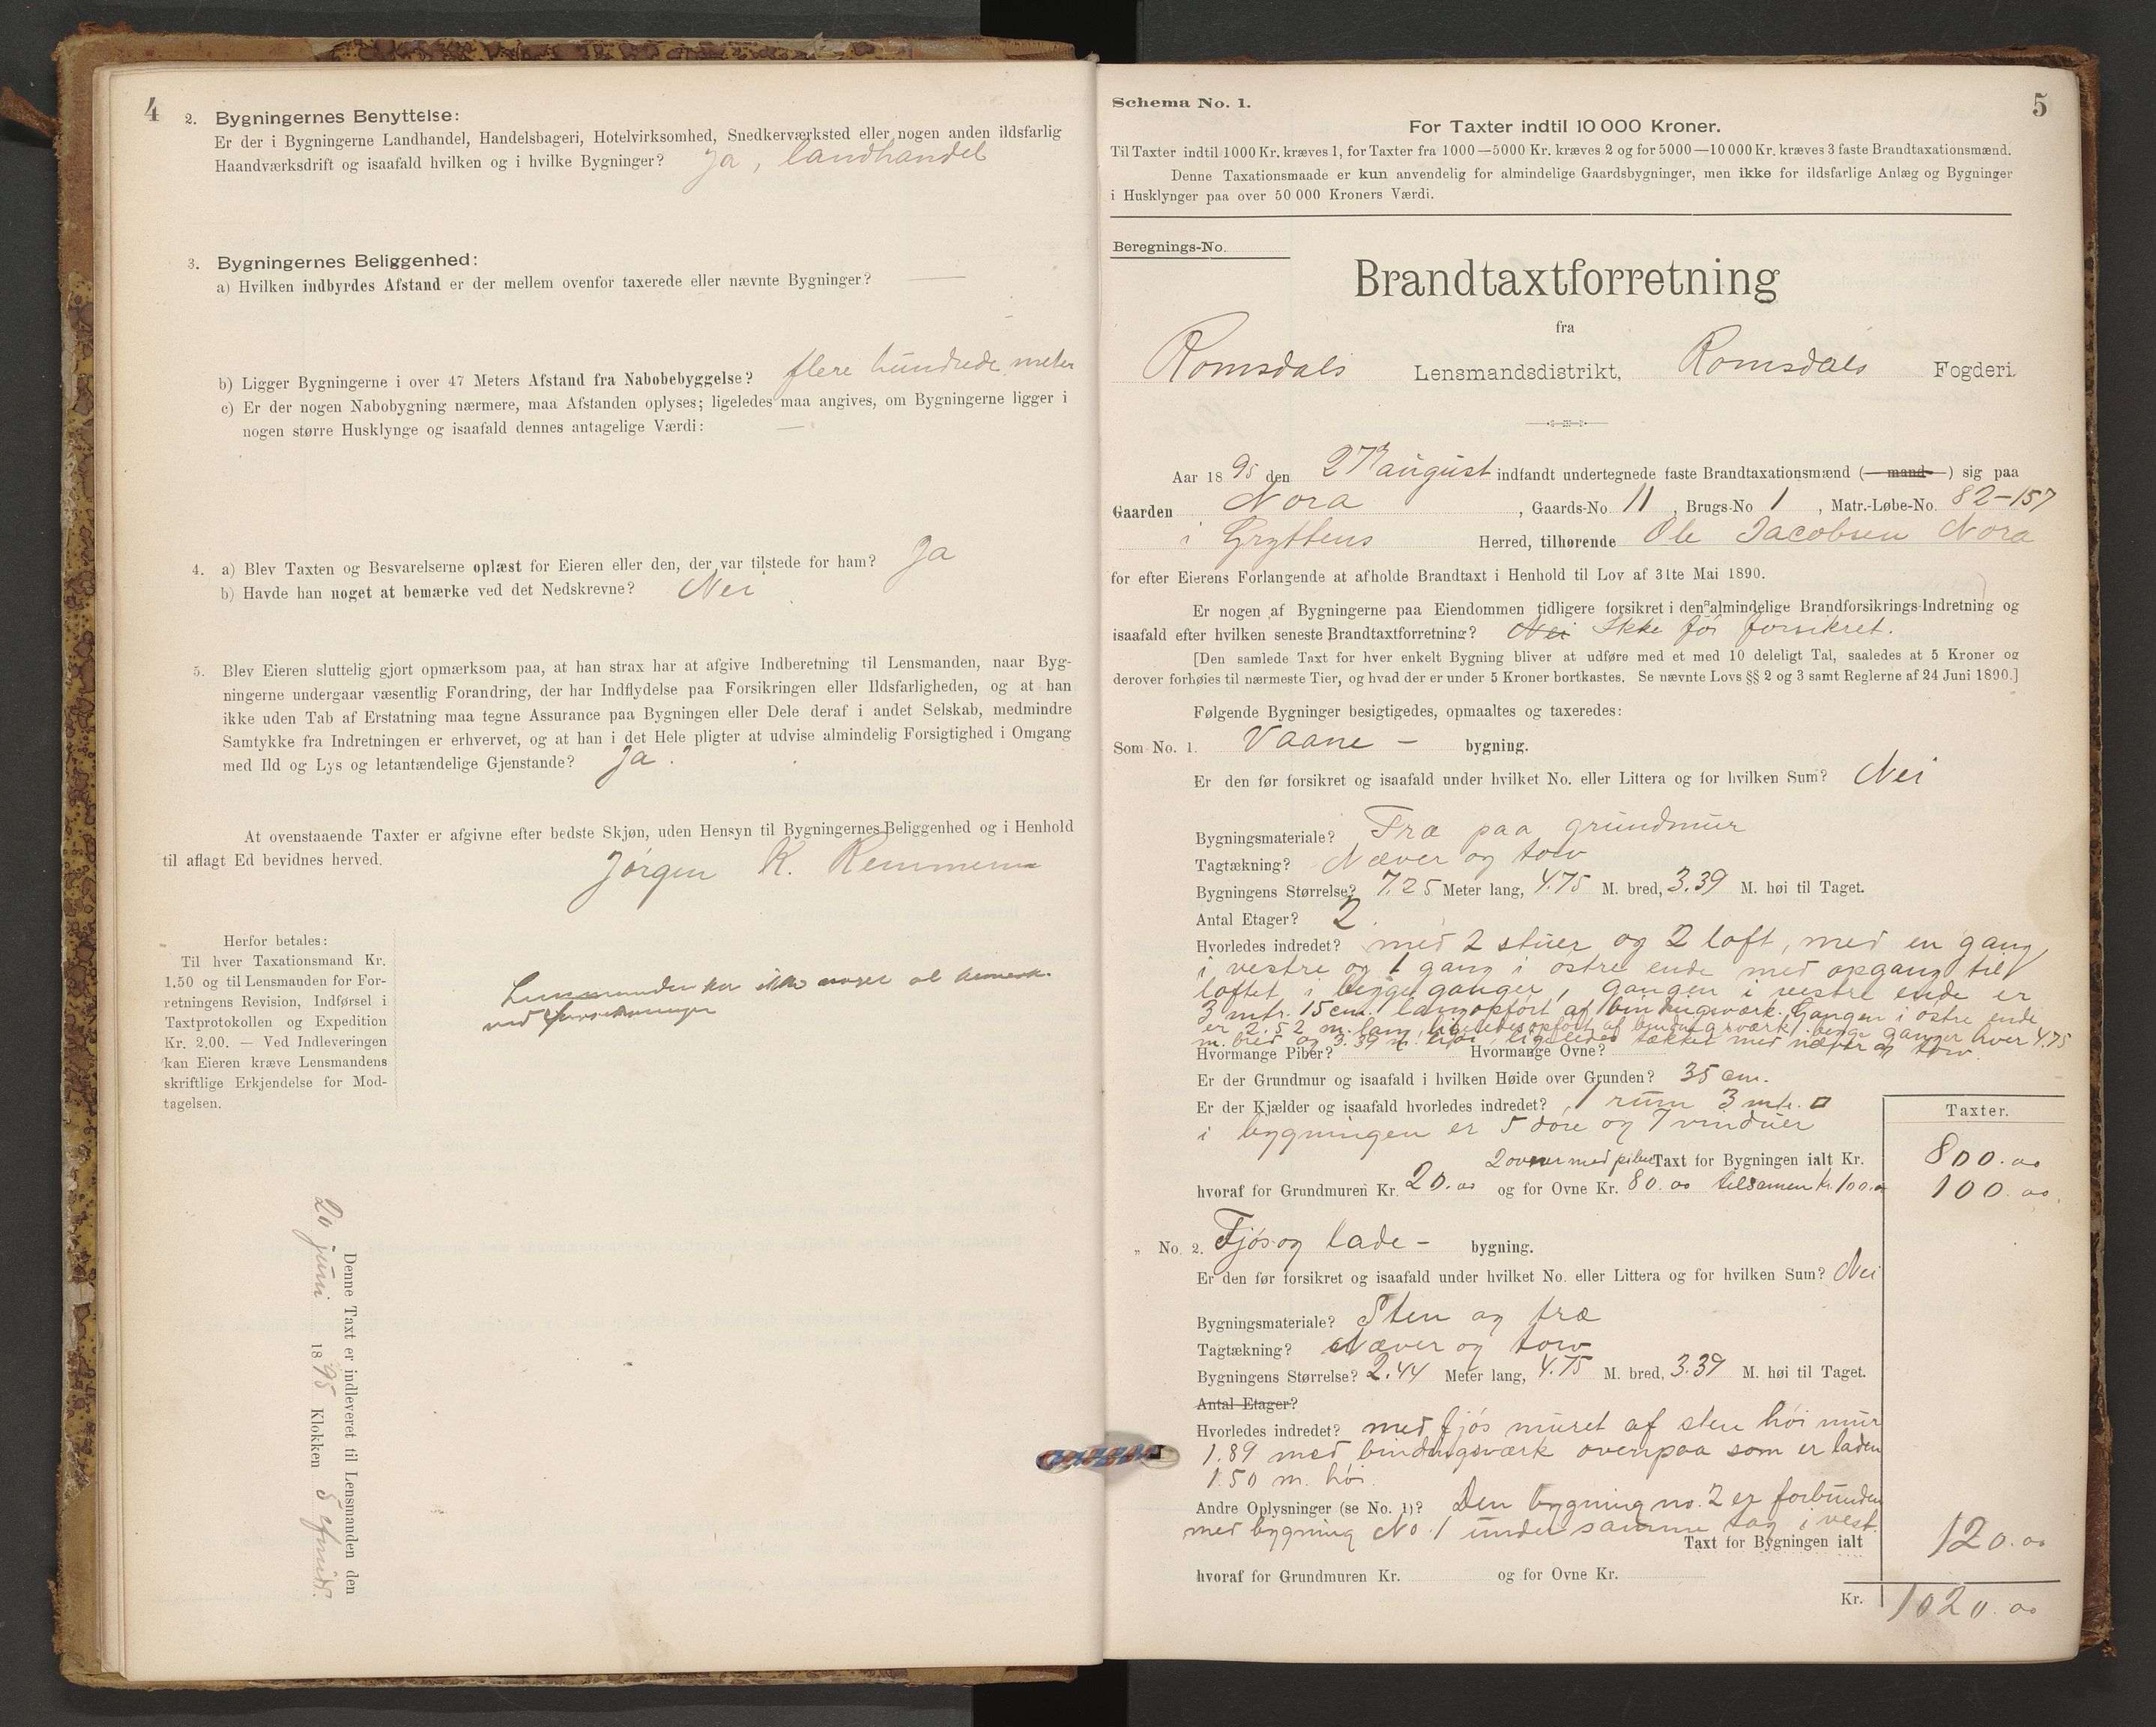 4
2. Bygningernes Benyttelse:
Er der i Bygningerne Landhandel, Handelsbageri, Hotelvirksomhed, Snedkerværksted eller nogen anden ildsfarlig
Haandværksdrift og isaafald hvilken og i hvilke Bygninger? Ja, landhandel
3. Bygningernes Beliggenhed:
a) Hvilken indbyrdes Afstand er der mellem ovenfor taxerede eller nævnte Bygninger? —
b) Ligger Bygningerne i over 47 Meters Afstand fra Nabobebyggelse? flere hundrede meter
c) Er der nogen Nabobygning nærmere, maa Afstanden oplyses; ligeledes maa angives, om Bygningerne ligger i
nogen større Husklynge og isaafald dennes antagelige Værdi: —
4. a) Blev Taxten og Besvarelserne oplæst for Eieren eller den, der var tilstede for ham? Ja
b) Havde han noget at bemærke ved det Nedskrevne? Nei
5. Blev Eieren sluttelig gjort opmærksom paa, at han strax har at afgive Indberetning til Lensmanden, naar Byg-
ningerne undergaar væsentlig Forandring, der har Indflydelse paa Forsikringen eller Ildsfarligheden, og at han
ikke uden Tab af Erstatning maa tegne Assurance paa Bygningen eller Dele deraf i andet Selskab, medmindre
Samtykke fra Indretningen er erhvervet, og at han i det Hele pligter at udvise almindelig Forsigtighed i Omgang
med Ild og Lys og letantændelige Gjenstande? Ja.
At ovenstaaende Taxter er afgivne efter bedste Skjøn, uden Hensyn til Bygningernes Beliggenhed og i Henhold
til aflagt Ed bevidnes herved.
Jørgen K. Remmem
Herfor betales:
Til hver Taxationsmand Kr.
1.50 og til Lensmanden for For-
retningens Revision, Indførsel i
Taxtprotokollen og Expedition
Kr. 2.00. — Ved Indleveringen
kan Eieren kræve Lensmandens
skriftlige Erkjendelse for Mod-
tagelsen.
Lensmanden har ikke noget at bemerke
ved forretningen
Denne Taxt er indleveret til Lensmanden den
20 juni 1895 Klokken 5 efmidd.
5
Schema No. 1.
For Taxter indtil 10 000 Kroner.
Til Taxter indtil 1000 Kr. kræves 1, for Taxter fra 1000—5000 Kr. kræves 2 og for 5000—10 000 Kr. kræves 3 faste Brandtaxationsmænd.
Denne Taxationsmaade er kun anvendelig for almindelige Gaardsbygninger, men ikke for ildsfarlige Anlæg og Bygninger
i Husklynger paa over 50 000 Kroners Værdi.
Beregnings-No.
Brandtaxtforretning
fra
Romsdals Lensmandsdistrikt, Romsdals Fogderi
Aar 1895 den 27 august indfandt undertegnede faste Brandtaxationsmænd (—mand—) sig paa
Gaarden Nora, Gaards-No 11, Brugs-No 1, Matr.-Løbe-No. 82–157
i Gryttens Herred, tilhørende Ole Jacobsen Nora
for efter Eierens Forlangende at afholde Brandtaxt i Henhold til Lov af 31te Mai 1890.
Er nogen af Bygningerne paa Eiendommen tidligere forsikret i den almindelige Brandforsikrings-Indretning og
isaafald efter hvilken seneste Brandtaxtforretning? Nei Ikke før forsikret.
[Den samlede Taxt for hver enkelt Bygning bliver at udføre med et med 10 deleligt Tal, saaledes at 5 Kroner og
derover forhøies til nærmeste Tier, og hvad der er under 5 Kroner bortkastes. Se nævnte Lovs §§ 2 og 3 samt Reglerne af 24 Juni 1890.]
Følgende Bygninger besigtigedes, opmaaltes og taxeredes:
Som No. 1. Vaane – bygning.
Er den før forsikret og isaafald under hvilket No. eller Littera og for hvilken Sum? Nei
Bygningsmateriale? Træ paa grundmur
Tagtækning? Næver og torv
Bygningens Størrelse? 7.25 Meter lang, 4.75 M. bred, 3.39 M. høi til Taget.
Antal Etager? 2.
Hvorledes indredet? med 2 stuer og 2 loft, med en gang
i vestre og 1 gang i østre ende med opgang til
loftet i begge ganger, gangen i vestre ende er
3 mtr. 15 cm. lang opført af bindingsværk. Gangen i østre ende
er 2.52 m. lang, ligeledes opført af bindingsværk, begge ganger hver 4.75
m. bred og 3.39 m. høi, ligeledes tækket med næver og torv.
Hvormange Piber? Hvormange Ovne?
Er der Grundmur og isaafald i hvilken Høide over Grunden? 35 cm.
Er der Kjælder og isaafald hvorledes indredet? 1 rum 3 mtr. □
i bygningen er 5 døre og 7 vinduer
Taxter.
2 ovner med piber Taxt for Bygningen ialt Kr. 800.00
hvoraf for Grundmuren Kr. 20.00 og for Ovne Kr. 80.00 tilsamen kr. 100.00 100.00
„ No. 2. Fjøs og lade – bygning.
Er den før forsikret og isaafald under hvilket No. eller Littera og for hvilken Sum? Nei
Bygningsmateriale? Sten og træ
Tagtækning? Næver og torv
Bygningens Størrelse? 2.44 Meter lang, 4.75 M. bred, 3.39 M. høi til Taget.
Antal Etager?
Hvorledes indredet? med fjøs muret af sten høi mur
1.89 med bindingsværk ovenpaa som er laden
1.50 m. høi.
Andre Oplysninger (se No. 1)? Den bygning no. 2 er forbunden
med bygning No. 1 under samme tag i vest.
Taxt for Bygningen ialt 120.00
hvoraf for Grundmuren Kr. og for Ovne Kr.
Kr. 1020.00